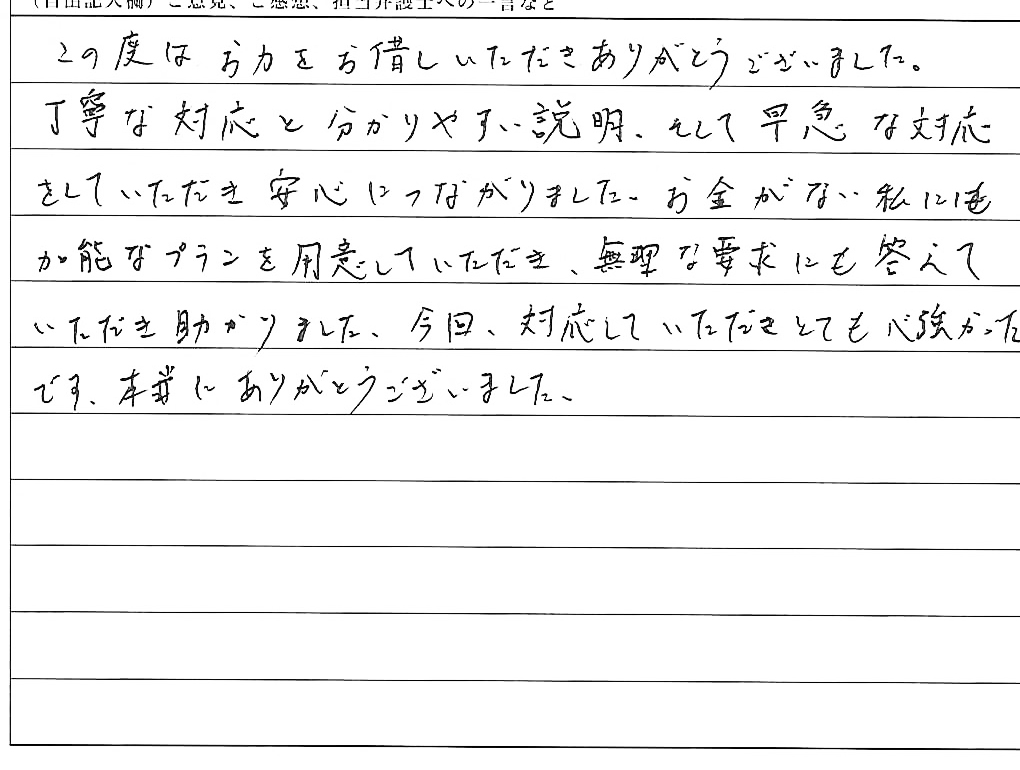 (自由記入欄)ご意見、ご感想、担当弁護士への一言など
この度はお力をお借しいただきありがとうございました。
丁寧な対応と分かりやすい説明、そして早急な対応
をしていただき安心につながりました。お金がない私にも
可能なプランを用意していただき、無理な要求にも答えて
いただき助かりました、今回、対応していただきとても心強かった
です、本当にありがとうございました、